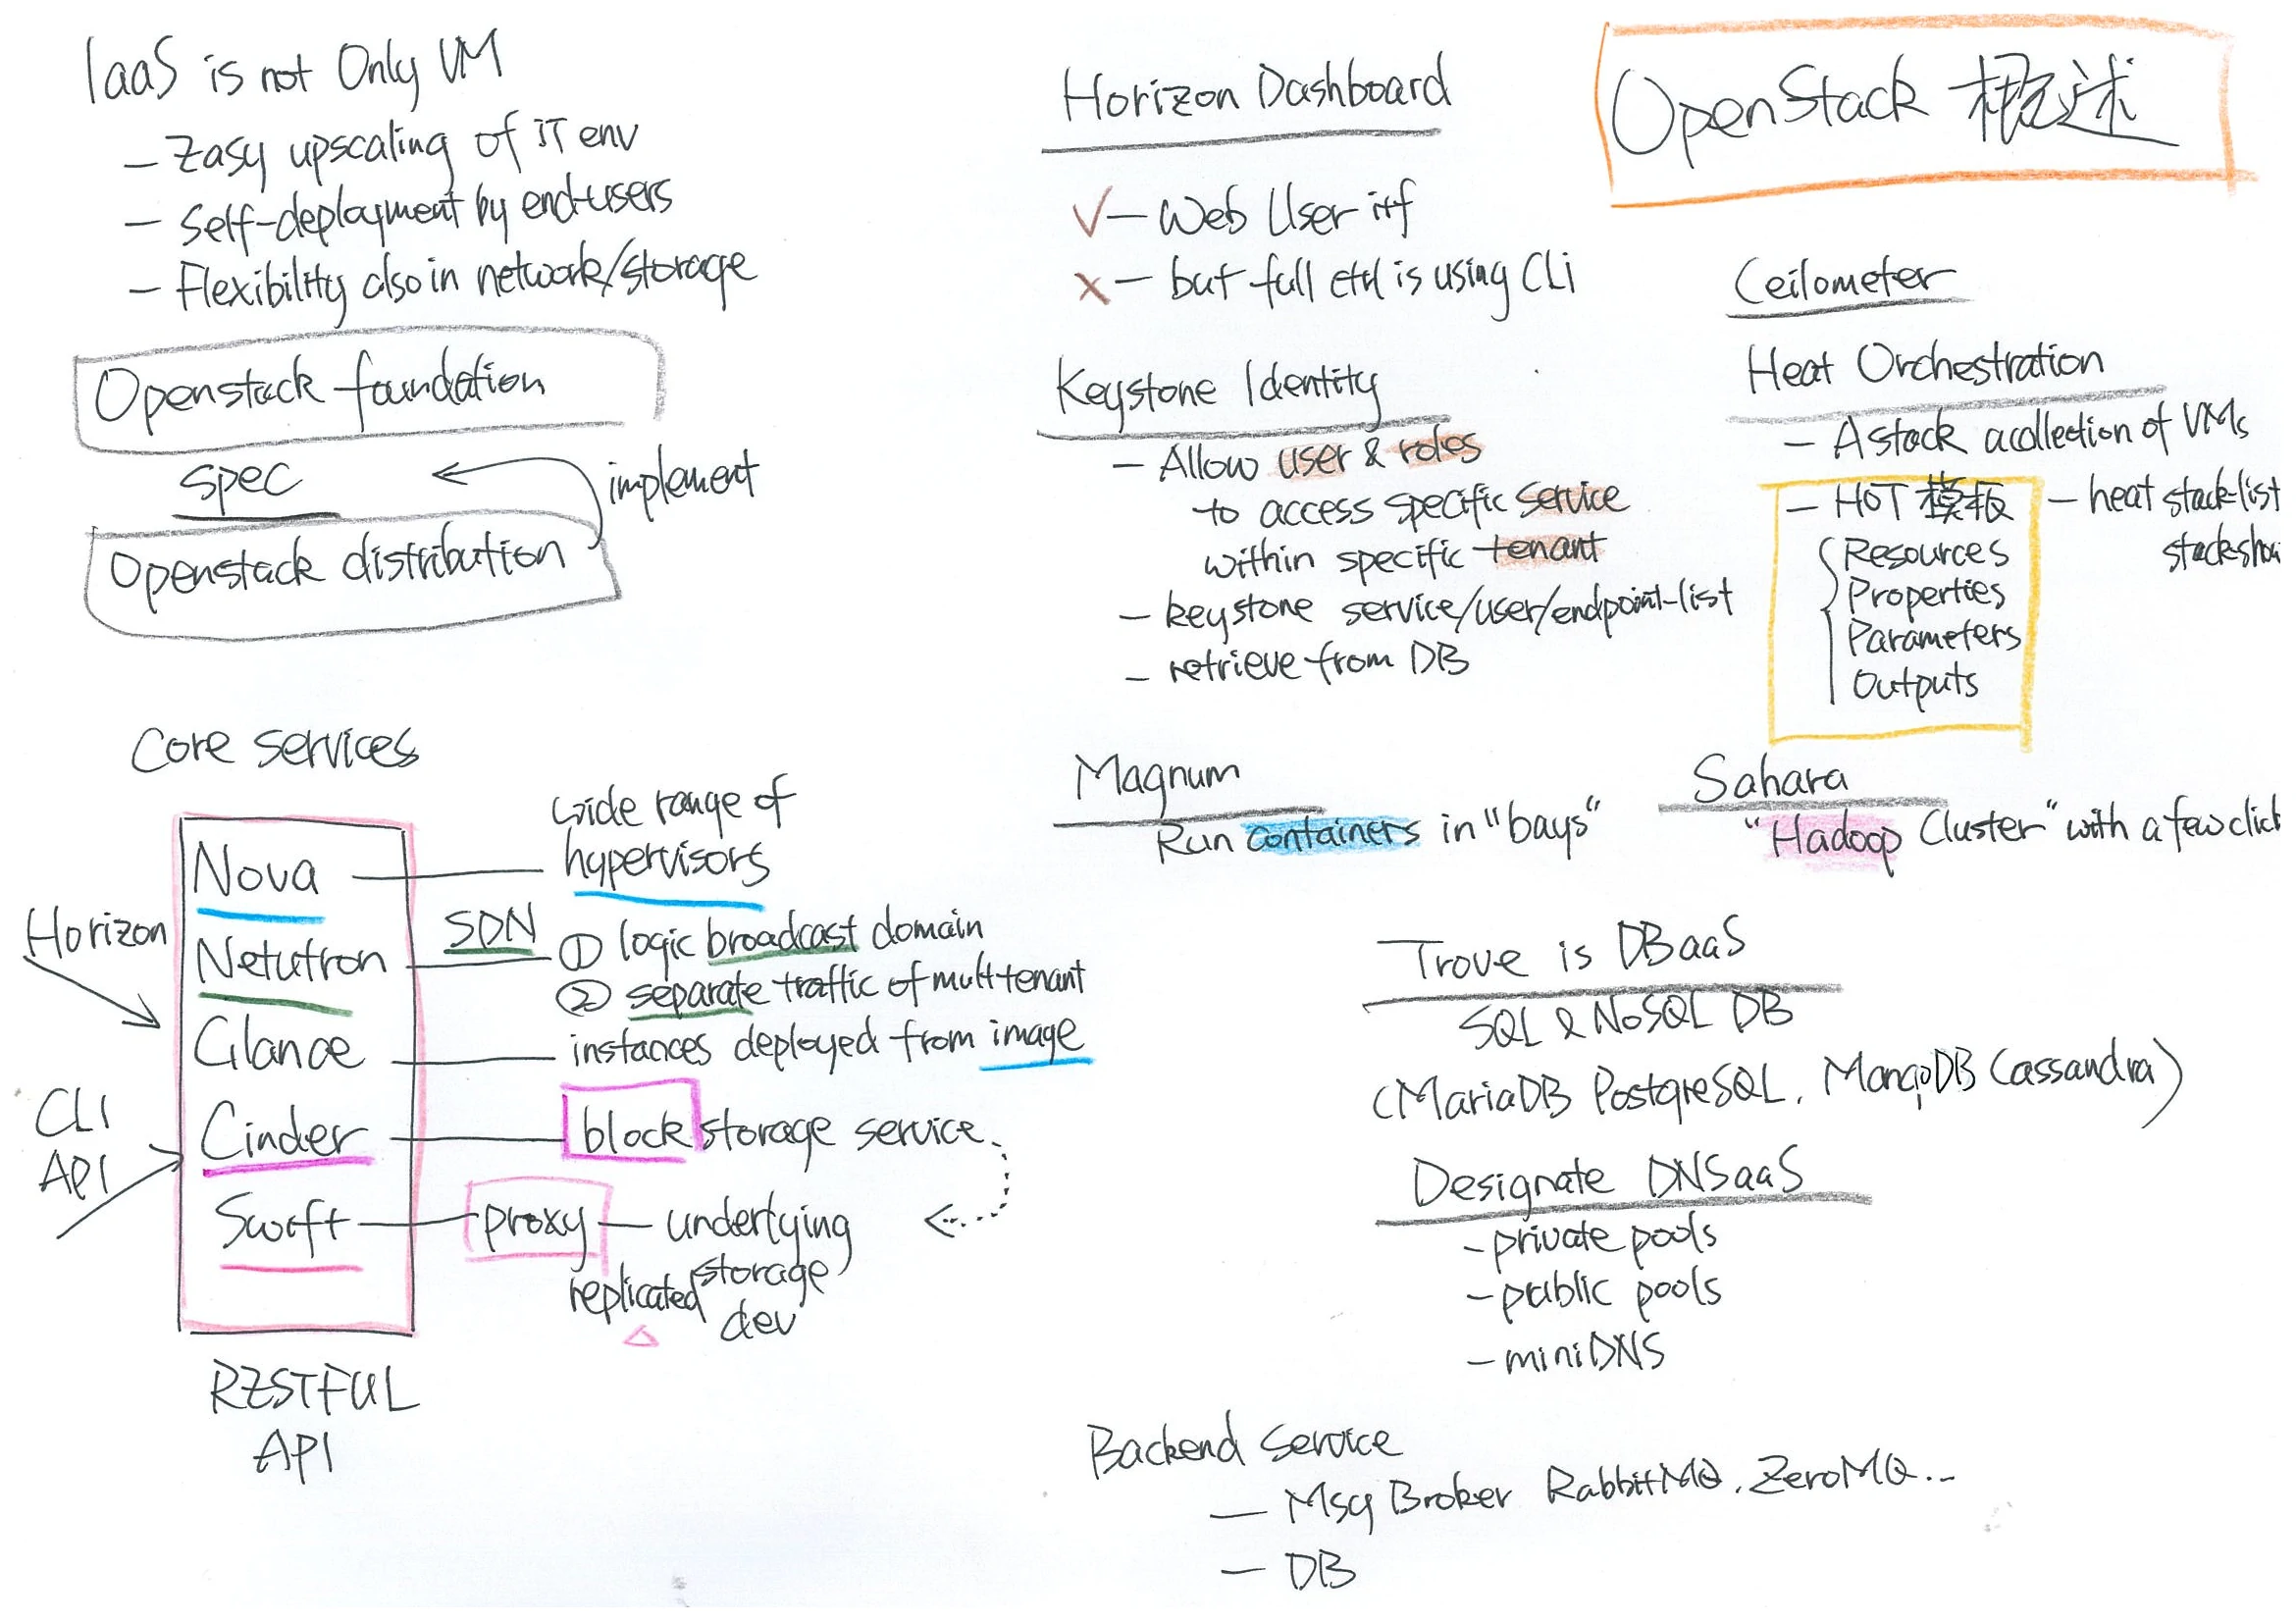 IaaS is not Only VM
- Easy upscaling of iT env
- Self-deployment by end-users
- Flexibility also in network/storage
Openstack foundation
spec
implement
Openstack distribution
Core services
Nova
wide range of
hypervisors
Netutron
SDN
① logic broadcast domain
② separate traffic of multtenant
Glance
instances deployed from image
Cinder
block storage service
Swift
proxy
underlying
replicated storage
dev
Horizon
CLI
API
RESTFUL
API
Horizon Dashboard
√ - Web User itf
x - but full ctrl is using CLi
Keystone Identity
- Allow user & roles
to access specific service
within specific tenant
- keystone service/user/endpoint-list
- retrieve from DB
Magnum
Run containers in "bays"
OpenStack 概述
Ceilometer
Heat Orchestration
- A stack a collection of VMs
- HOT 模板
Resources
Properties
Parameters
Outputs
- heat stack-list
stack-show
Sahara
"Hadoop Cluster" with a few click
Trove is DBaaS
SQL & NoSQL DB
(MariaDB PostgreSQL, MongoDB Cassandra)
Designate DNSaaS
- private pools
- public pools
- miniDNS
Backend Service
- Msg Broker RabbitMQ, ZeroMQ...
- DB